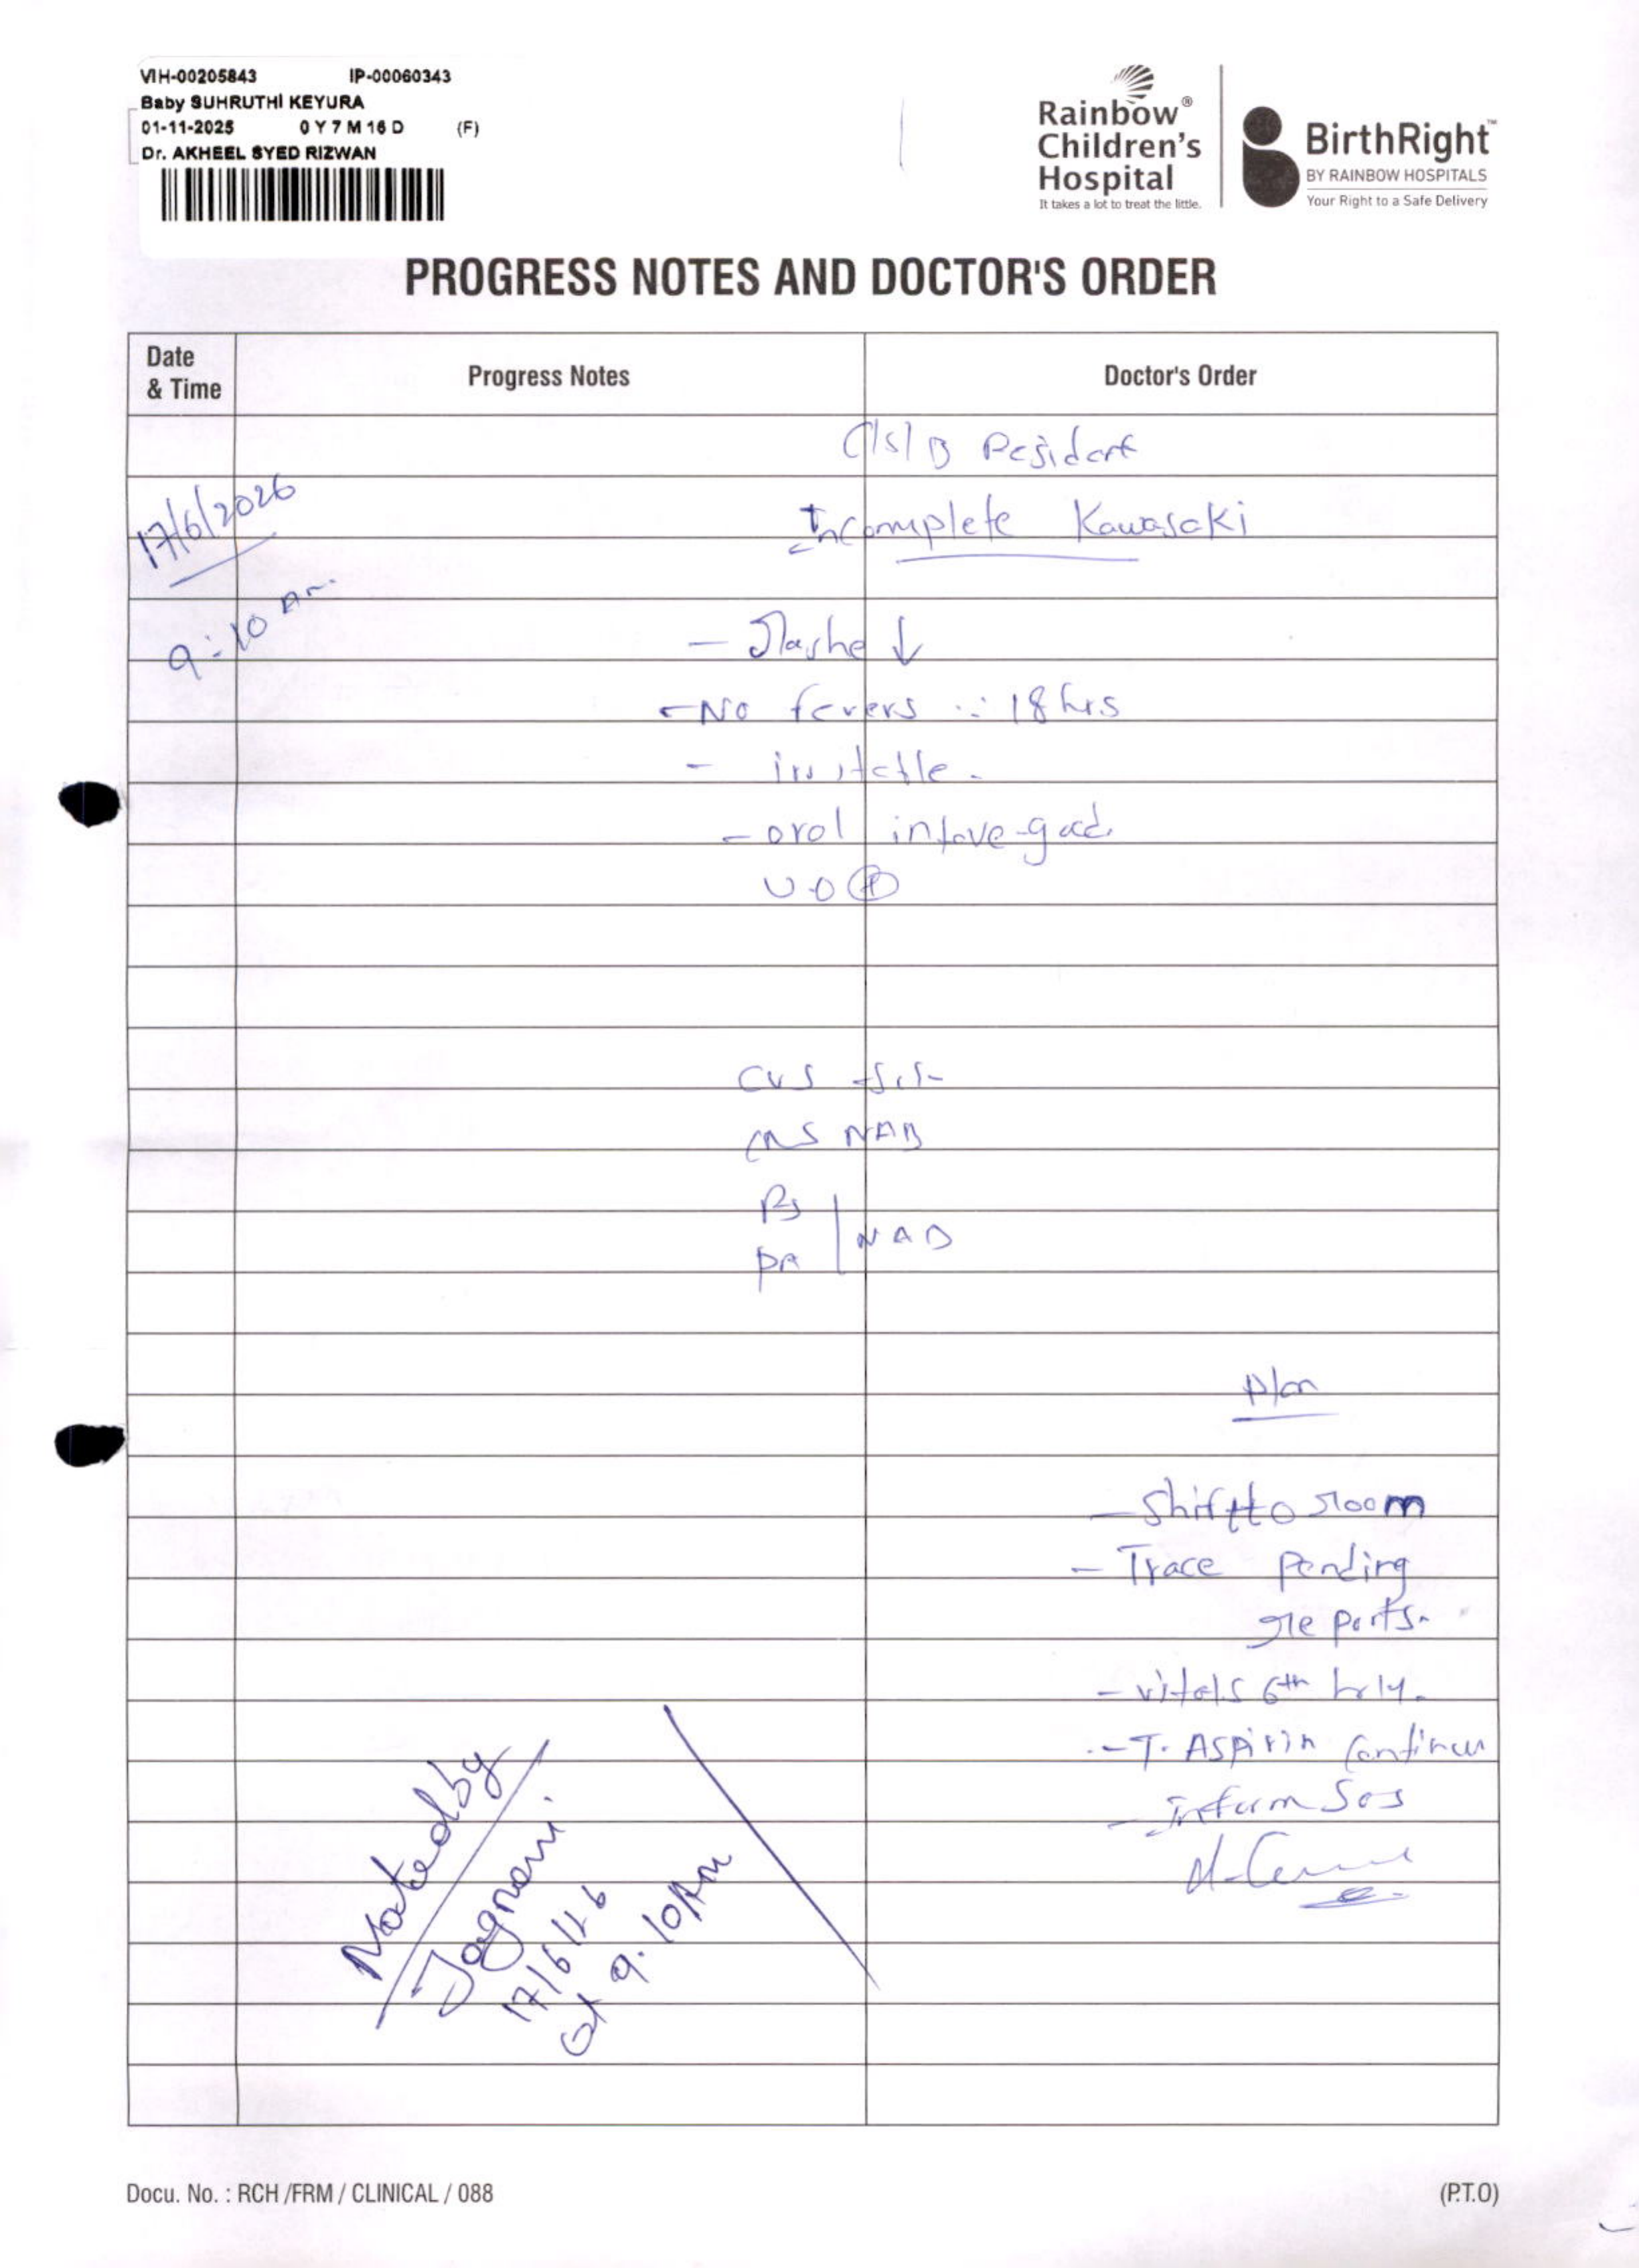 VIH-00205843 IP-00060343
Baby SUHRUTHI KEYURA
01-11-2025 0 Y 7 M 16 D (F)
Dr. AKHEEL SYED RIZWAN
Rainbow®
Children's
Hospital
It takes a lot to treat the little.
BirthRight™
BY RAINBOW HOSPITALS
Your Right to a Safe Delivery
PROGRESS NOTES AND DOCTOR'S ORDER
Date
& Time
Progress Notes
Doctor's Order
C/S/B Resident
17/6/2026
Incomplete Kawasaki
9:10 Am
- Rashe ↓
- No fevers ∵ 18 hrs
- irritable.
- oral intake good.
UO ⊕
CVS
CNS NAD
RS
NAD
PA
Plan
- Shift to room
- Trace Pending
reports.
- vitals 6th hrly.
- T. ASPirin Continue
- Inform Sos
Noted by
17/6/26
at 9.10Am
Docu. No. : RCH /FRM / CLINICAL / 088
(P.T.O)